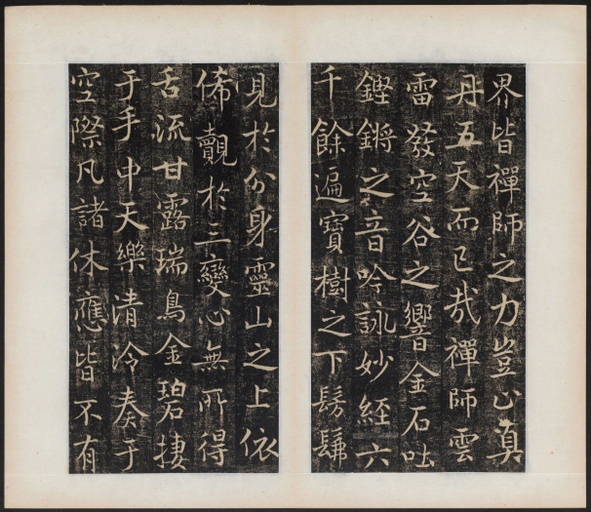 界皆禪師之力豈止真
丹五天而已哉禪師雲
雷發空谷之響金石吐
鏗鏘之音吟詠妙經六
千餘遍寶樹之下髣髴
見於分身靈山之上依
俙覿於三變心無所得
舌流甘露瑞鳥金碧捿
于手中天樂清泠奏于
空際凡諸休應皆不有